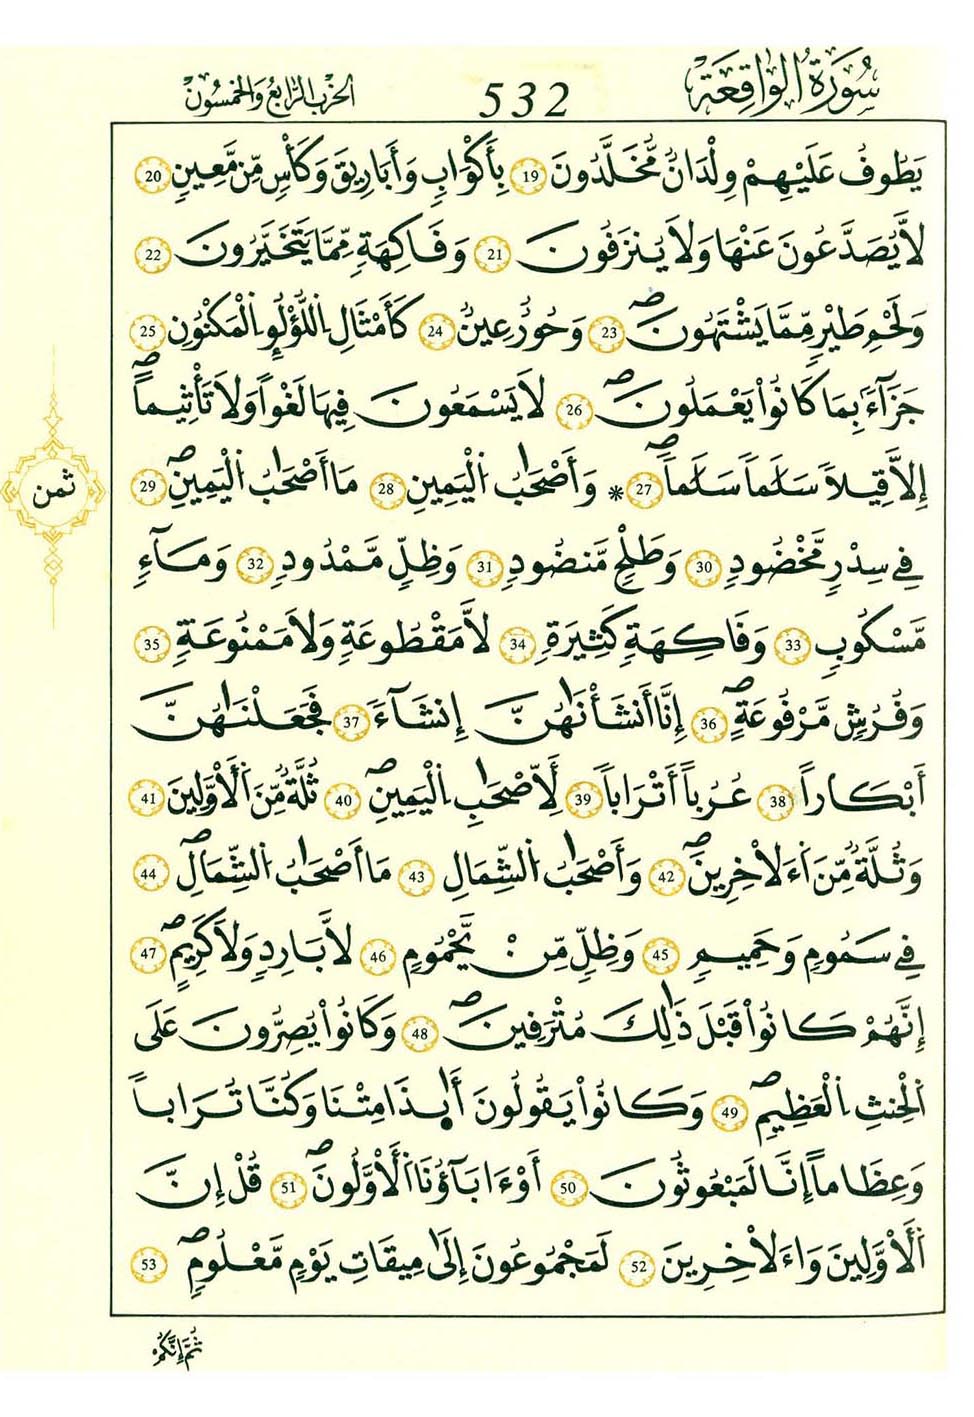 سُورَةُ الْوَاقِعَةِ 532 الحزب الرابع والخمسون
يَطُوفُ عَلَيْهِمْ وِلْدَانٌ مُّخَلَّدُونَ 19 بِأَكْوَابٍ وَأَبَارِيقَ وَكَأْسٍ مِّن مَّعِينٍ 20
لَّا يُصَدَّعُونَ عَنْهَا وَلَا يُنزَفُونَ 21 وَفَاكِهَةٍ مِّمَّا يَتَخَيَّرُونَ 22
وَلَحْمِ طَيْرٍ مِّمَّا يَشْتَهُونَ 23 وَحُورٌ عِينٌ 24 كَأَمْثَالِ اِللُّؤْلُوِٕ اِلْمَكْنُونِ 25
جَزَآءَۢ بِمَا كَانُواْ يَعْمَلُونَ 26 لَا يَسْمَعُونَ فِيهَا لَغْواً وَلَا تَأْثِيماً
إِلَّا قِيلاً سَلَٰماً سَلَٰماً 27 * وَأَصْحَٰبُ اُلْيَمِينِ 28 مَا أَصْحَٰبُ اُلْيَمِينِ 29
فِے سِدْرٍ مَّخْضُودٍ 30 وَطَلْحٍ مَّنضُودٍ 31 وَظِلٍّ مَّمْدُودٍ 32 وَمَآءٍ
مَّسْكُوبٍ 33 وَفَاكِهَةٍ كَثِيرَةٍ 34 لَّا مَقْطُوعَةٍ وَلَا مَمْنُوعَةٍ 35
وَفُرُشٍ مَّرْفُوعَةٍ 36 إِنَّا أَنشَأْنَٰهُنَّ إِنشَآءً 37 فَجَعَلْنَٰهُنَّ
أَبْكَاراً 38 عُرُباً أَتْرَاباً 39 لِّأَصْحَٰبِ اِلْيَمِينِ 40 ثُلَّةٌ مِّنَ اَلْأَوَّلِينَ 41
وَثُلَّةٌ مِّنَ اَءَلَاْخِرِينَ 42 وَأَصْحَٰبُ اُلشِّمَالِ 43 مَا أَصْحَٰبُ اُلشِّمَالِ 44
فِے سَمُومٍ وَحَمِيمٍ 45 وَظِلٍّ مِّنْ يَّحْمُومٍ 46 لَّا بَارِدٍ وَلَا كَرِيمٍ 47
إِنَّهُمْ كَانُواْ قَبْلَ ذَٰلِكَ مُتْرَفِينَ 48 وَكَانُواْ يُصِرُّونَ عَلَى
اَلْحِنثِ اِلْعَظِيمِ 49 وَكَانُواْ يَقُولُونَ أَٰ۪ذَا مِتْنَا وَكُنَّا تُرَاباً
وَعِظَاماً إِنَّا لَمَبْعُوثُونَ 50 أَوْ ءَابَآؤُنَا اَلْأَوَّلُونَ 51 قُلْ إِنَّ
اَلْأَوَّلِينَ وَاءَلَاْخِرِينَ 52 لَمَجْمُوعُونَ إِلَىٰ مِيقَاتِ يَوْمٍ مَّعْلُومٍ 53
ثمن
ثُمَّ إِنَّكُمْ